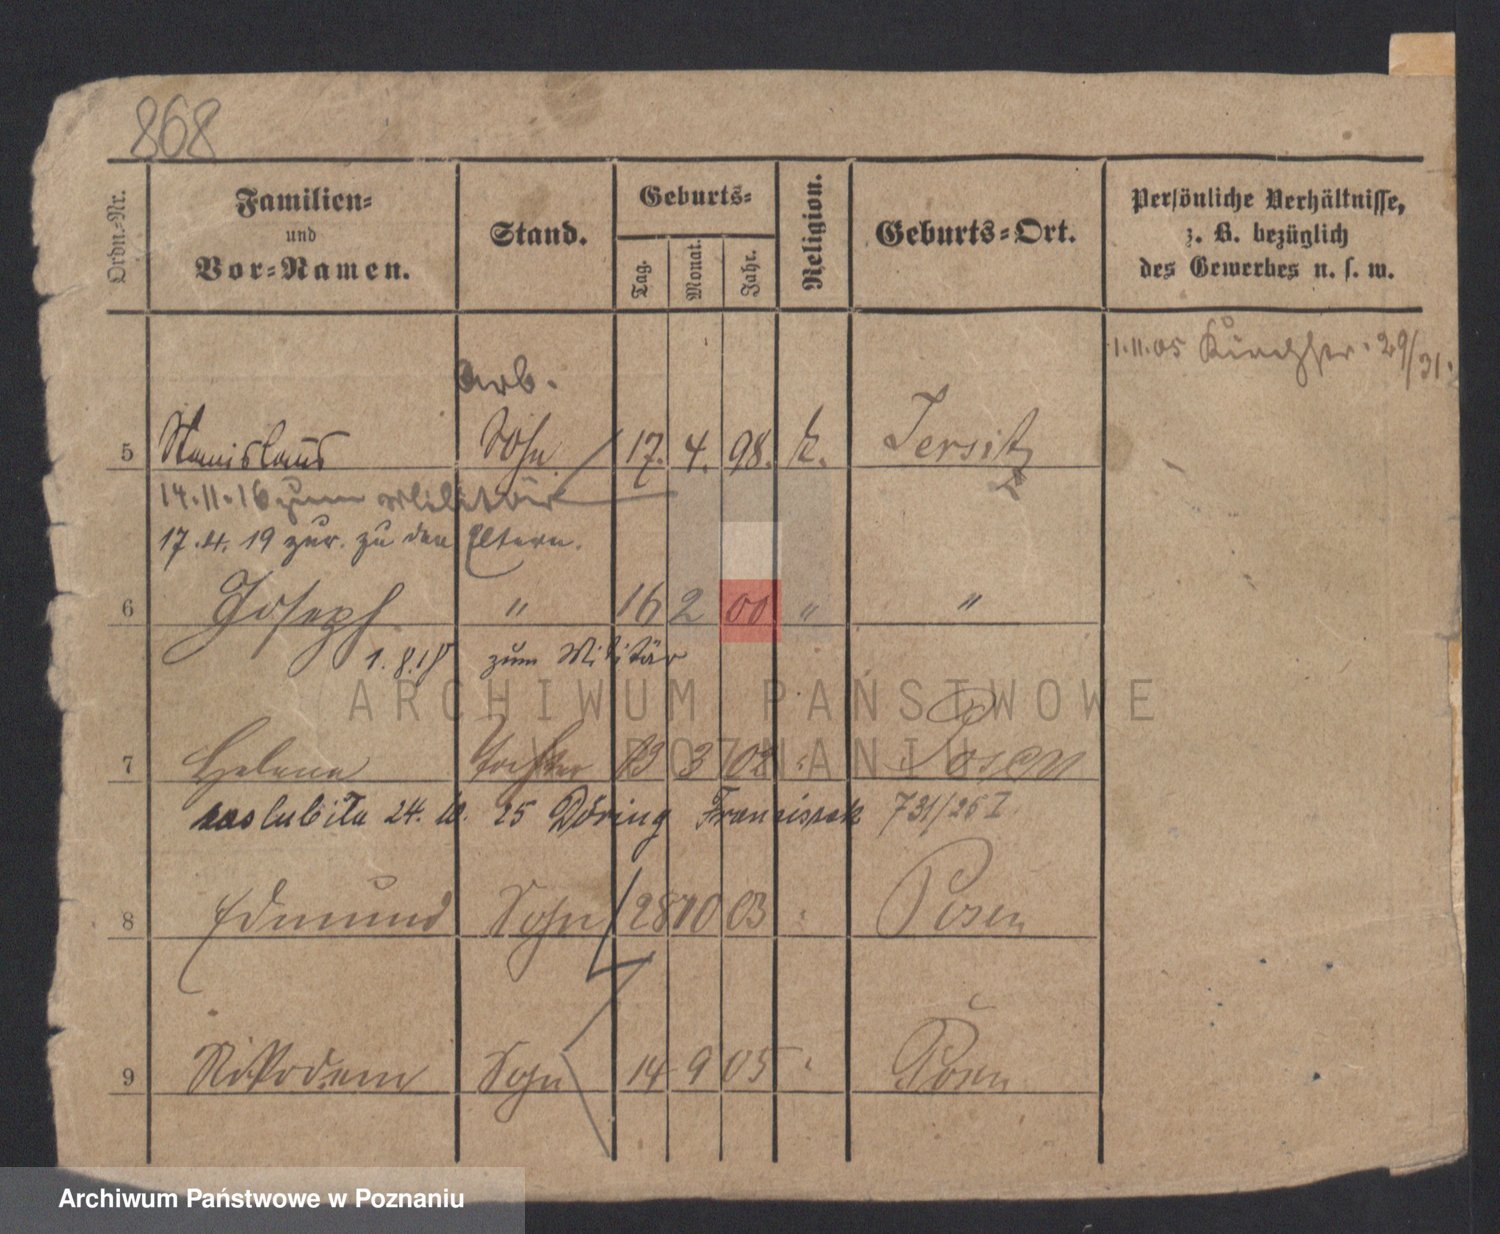 868
Ordn.-Nr. Familien- und Vor-Namen. Stand. Geburts- Tag. Monat. Jahr. Religion. Geburts-Ort. Persönliche Verhältnisse, z. B. bezüglich des Gewerbes u. s. w.
1.11.05 29/31.
Arb.
5 Stanislaus Sohn 17. 4. 98. k. Jersitz
14.11.16 zum Militär
17.4.19 zur. zu den Eltern.
6 Joseph " 16 2 00 " "
1.8.18 zum Militär
ARCHIWUM PAŃSTWOWE
W POZNANIU
7 Helena Tochter 13 3 02 " Posen
zaslubiła 24. 10. 25 Döring Franciszek 731/26 I
8 Edmund Sohn 28 10 03 " Posen
9 Nikodem Sohn 14 9 05 " Posen
Archiwum Państwowe w Poznaniu